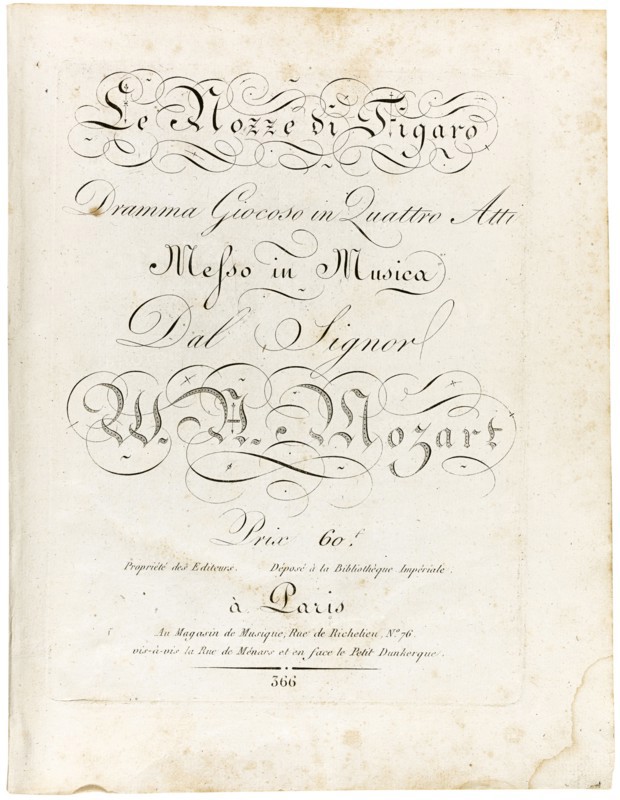 Le Nozze di Figaro
Dramma Giocoso in Quattro Atti
Meſso in Musica
Dal Signor
W. A. Mozart
Prix 60.f
Propriété des Editeurs. Déposé à la Bibliothèque Impériale.
à Paris
Au Magasin de Musique, Rue de Richelieu, No. 76.
vis-à-vis la Rue de Ménars et en face le Petit Dunkerque.
366